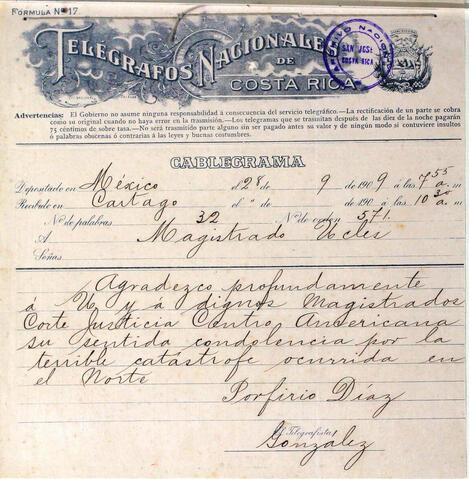 FORMULA Nº 17.
TELÉGRAFOS NACIONALES
DE
COSTA RICA
ARCHIVO NACIONAL
SAN JOSE
COSTA RICA
Advertencias: El Gobierno no asume ninguna responsabilidad á consecuencia del servicio telegráfico.—La rectificación de un parte se cobra
como su original cuando no haya error en la trasmisión.—Los telegramas que se trasmitan después de las diez de la noche pagarán
75 céntimos de sobre tasa.—No será trasmitido parte alguno sin ser pagado antes su valor y de ningún modo si contuviere insultos
ó palabras obscenas ó contrarias á las leyes y buenas costumbres.
CABLEGRAMA
Depositado en México el 28 de 9 de 1909 á las 7 55 a. m
Recibido en Cartago el " de " de 190 á las 10 35 a. m
Nº de palabras 32 Nº de orden 571.
A Magistrado Ucles
Señas
Agradezco profundamente
á U y á dignos Magistrados
Corte Justicia Centro Americana
su sentida condolencia por la
terrible catástrofe ocurrida en
el Norte
Porfirio Díaz
El Telegrafista
González